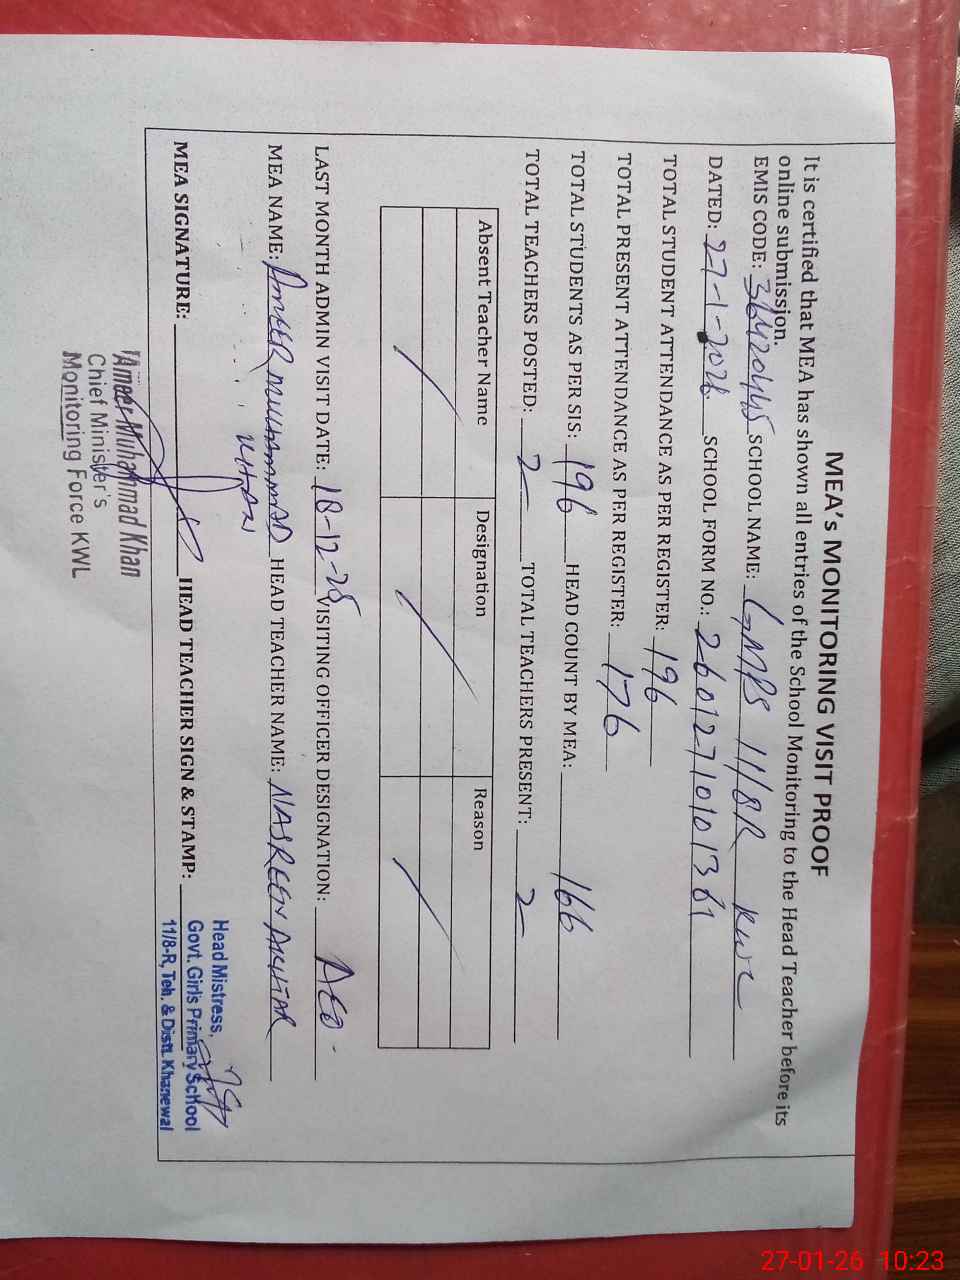 MEA's MONITORING VISIT PROOF
It is certified that MEA has shown all entries of the School Monitoring to the Head Teacher before its
online submission.
EMIS CODE: SCHOOL NAME: GMPS 11/8R KWL
DATED: 27-1-2026 SCHOOL FORM NO.: 26012710101381
TOTAL STUDENT ATTENDANCE AS PER REGISTER: 196
TOTAL PRESENT ATTENDANCE AS PER REGISTER: 176
TOTAL STUDENTS AS PER SIS: 196 HEAD COUNT BY MEA: 166
TOTAL TEACHERS POSTED: 2 TOTAL TEACHERS PRESENT: 2
Absent Teacher Name Designation Reason
LAST MONTH ADMIN VISIT DATE: 18-12-25 VISITING OFFICER DESIGNATION: AEO
MEA NAME: AMEER MUHAMMAD KHAN HEAD TEACHER NAME: NASREEN AKHTAR
MEA SIGNATURE: HEAD TEACHER SIGN & STAMP:
Head Mistress,
Govt. Girls Primary School
11/8-R, Teh. & Distt. Khanewal
Ameer Muhammad Khan
Chief Minister's
Monitoring Force KWL
27-01-26 10:23